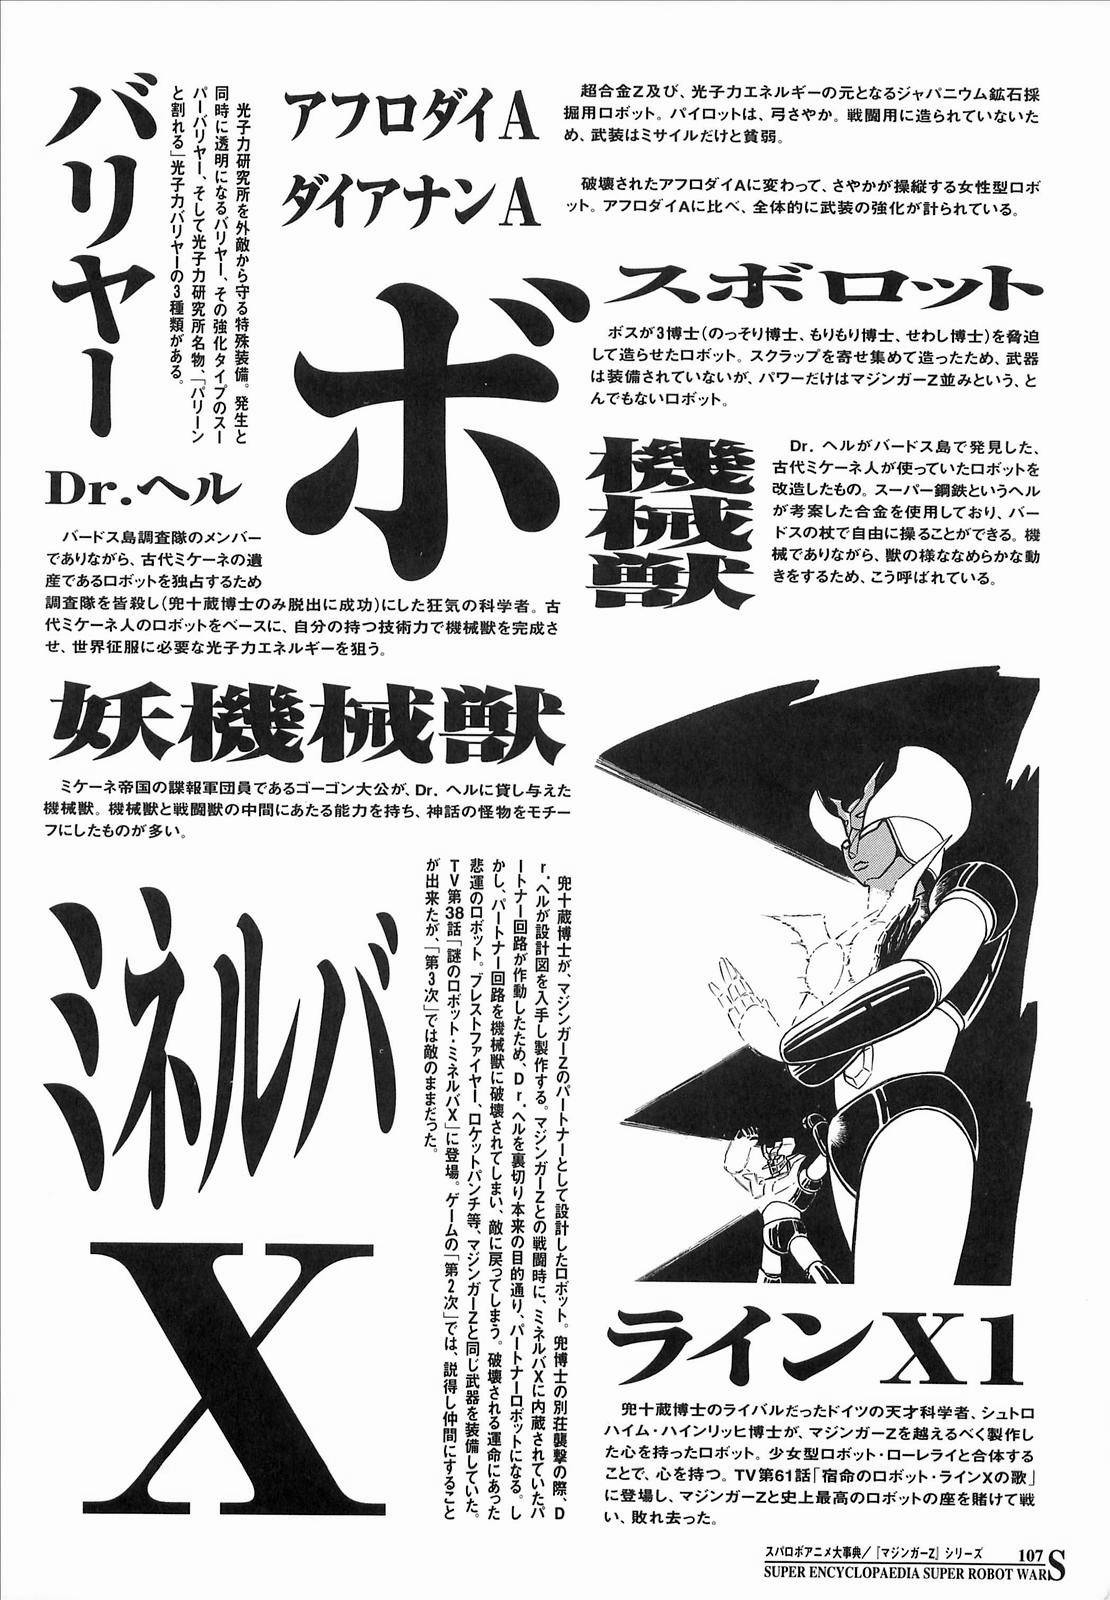 バリヤー
光子力研究所を外敵から守る特殊装備。発生と
同時に透明になるバリヤー、その強化タイプのスー
パーバリヤー、そして光子力研究所名物、「パリーン
と割れる」光子力バリヤーの3種類がある。
アフロダイA
超合金Z及び、光子力エネルギーの元となるジャパニウム鉱石採
掘用ロボット。パイロットは、弓さやか。戦闘用に造られていないた
め、武装はミサイルだけと貧弱。
ダイアナンA
破壊されたアフロダイAに変わって、さやかが操縦する女性型ロボ
ット。アフロダイAに比べ、全体的に武装の強化が計られている。
ボスボロット
ボスが3博士(のっそり博士、もりもり博士、せわし博士)を脅迫
して造らせたロボット。スクラップを寄せ集めて造ったため、武器
は装備されていないが、パワーだけはマジンガーZ並みという、と
んでもないロボット。
Dr.ヘル
バードス島調査隊のメンバー
でありながら、古代ミケーネの遺
産であるロボットを独占するため
調査隊を皆殺し(兜十蔵博士のみ脱出に成功)にした狂気の科学者。古
代ミケーネ人のロボットをベースに、自分の持つ技術力で機械獣を完成さ
せ、世界征服に必要な光子力エネルギーを狙う。
機械獣
Dr.ヘルがバードス島で発見した、
古代ミケーネ人が使っていたロボットを
改造したもの。スーパー鋼鉄というヘル
が考案した合金を使用しており、バー
ドスの杖で自由に操ることができる。機
械でありながら、獣の様ななめらかな動
きをするため、こう呼ばれている。
妖機械獣
ミケーネ帝国の諜報軍団員であるゴーゴン大公が、Dr.ヘルに貸し与えた
機械獣。機械獣と戦闘獣の中間にあたる能力を持ち、神話の怪物をモチー
フにしたものが多い。
ミネルバX
兜十蔵博士が、マジンガーZのパートナーとして設計したロボット。兜博士の別荘襲撃の際、D
r.ヘルが設計図を入手し製作する。マジンガーZとの戦闘時に、ミネルバXに内蔵されていたパ
ートナー回路が作動したため、Dr.ヘルを裏切り本来の目的通り、パートナーロボットになる。し
かし、パートナー回路を機械獣に破壊されてしまい、敵に戻ってしまう。破壊される運命にあった
悲運のロボット。ブレストファイヤー、ロケットパンチ等、マジンガーZと同じ武器を装備していた。
TV第38話「謎のロボット・ミネルバX」に登場。ゲームの「第2次」では、説得し仲間にすること
が出来たが、「第3次」では敵のままだった。
ラインX1
兜十蔵博士のライバルだったドイツの天才科学者、シュトロ
ハイム・ハインリッヒ博士が、マジンガーZを越えるべく製作し
た心を持ったロボット。少女型ロボット・ローレライと合体する
ことで、心を持つ。TV第61話「宿命のロボット・ラインXの歌」
に登場し、マジンガーZと史上最高のロボットの座を賭けて戦
い、敗れ去った。
スパロボアニメ大事典/『マジンガーZ』シリーズ 107
SUPER ENCYCLOPAEDIA SUPER ROBOT WARS